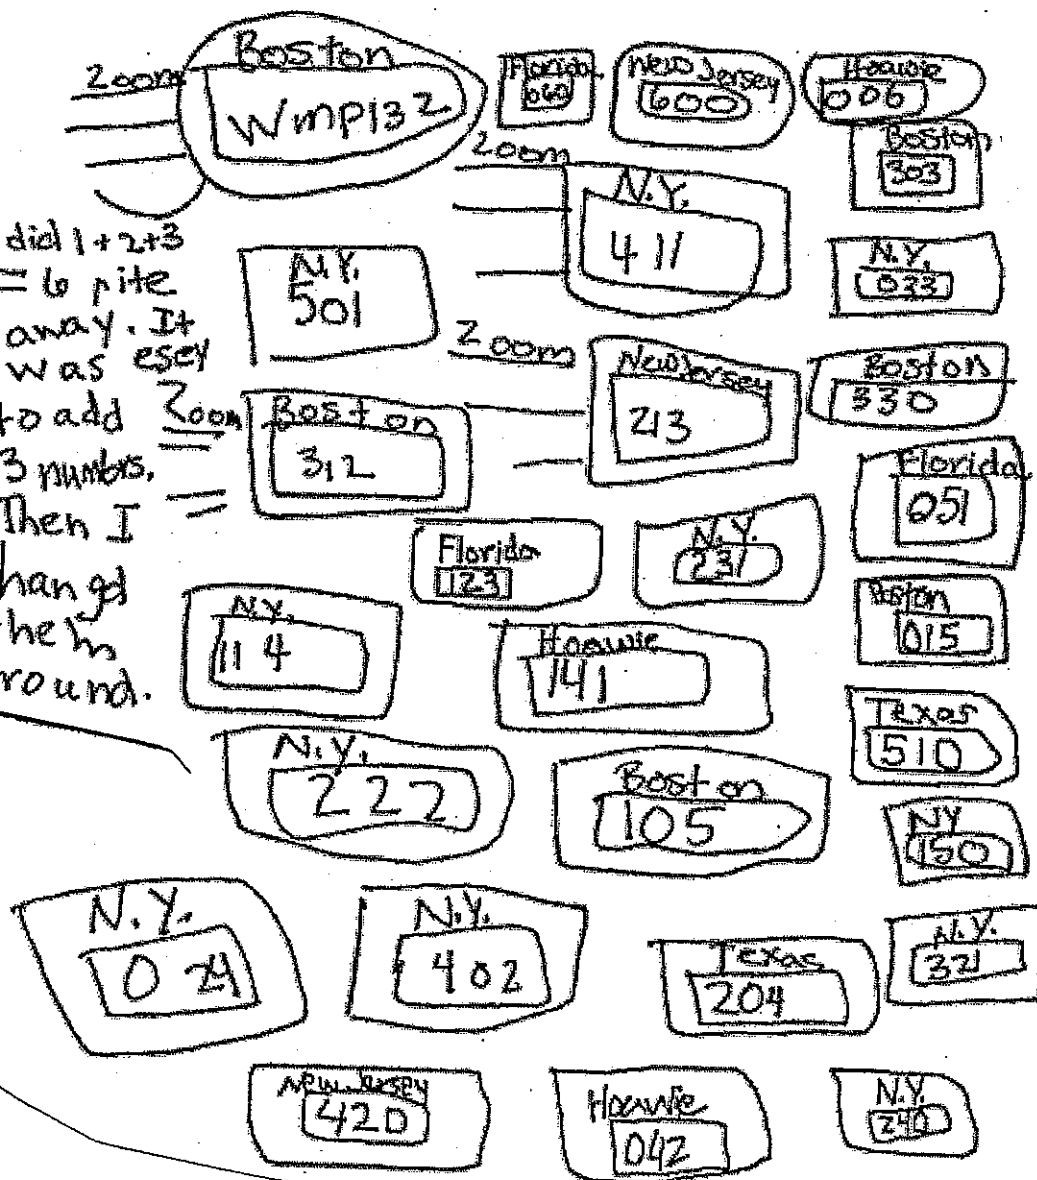 Zoom
Boston
Wmp132
Florida
060
New Jersey
600
Hoawie
006
Boston
303
Zoom
N.Y.
411
did 1+2+3
= 6 rite
away. It
was esey
to add
3 numbrs.
Then I
hangd
hem
round.
N.Y.
501
N.Y.
033
Zoom
New Jersey
213
Boston
330
Zoom
Boston
312
Florida
051
Florida
123
N.Y.
231
Boston
015
N.Y.
114
Hoawie
141
Texas
510
N.Y.
222
Boston
105
NY
150
N.Y.
024
N.Y.
402
Texas
204
N.Y.
321
New Jersey
420
Hoawie
042
N.Y.
240